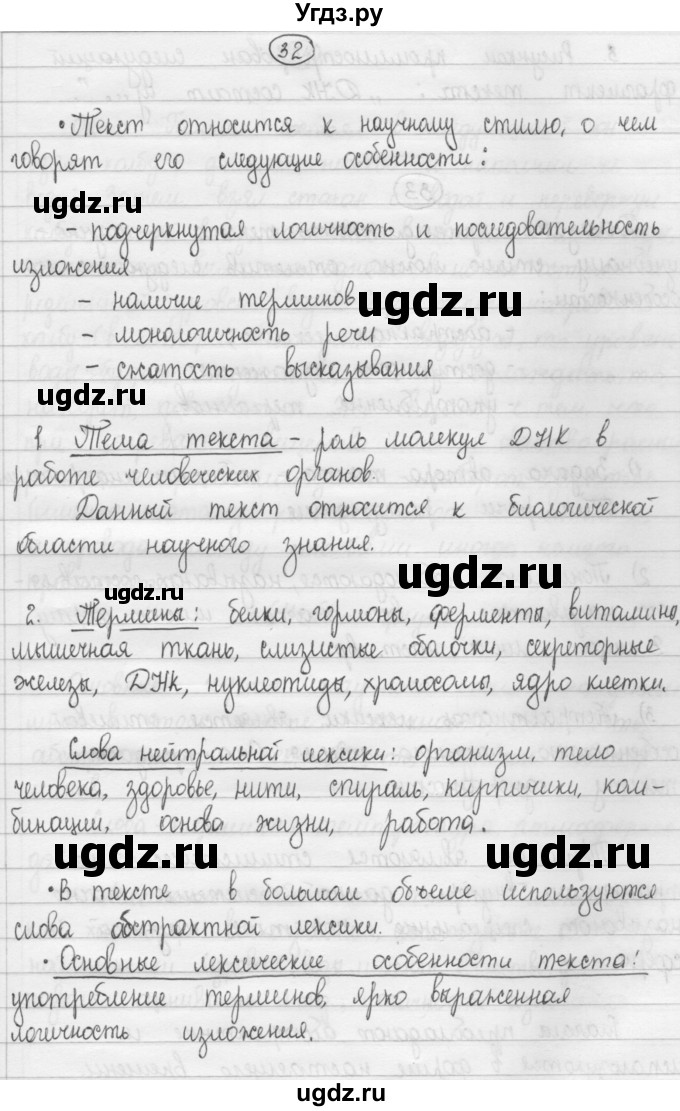 Угдз.ру
32
• Текст относится к научному стилю, о чем
говорят его следующие особенности:
ugdz.ru
- подчеркнутая логичность и последовательность
изложения
- наличие терминов
ugdz.ru
- монологичность речи
- сжатость высказывания
ugdz.ru
1. Тема текста - роль молекул ДНК в
работе человеческих органов.
Данный текст относится к биологической
области научного знания.
ugdz.ru
ugdz.ru
2. Термины: белки, гормоны, ферменты, витамины,
мышечная ткань, слизистые оболочки, секреторные
железы, ДНК, нуклеотиды, хромосомы, ядро клетки.
Слова нейтральной лексики: организм, тело
человека, здоровье, нити, спираль, кирпичики, ком-
бинации, основа жизни, работа.
ugdz.ru
ugdz.ru
• В тексте в большом объеме используются
слова абстрактной лексики.
• Основные лексические особенности текста:
употребление терминов, ярко выраженная
логичность изложения.
ugdz.ru
ugdz.ru